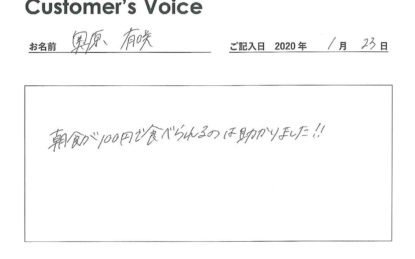 Customer's Voice
お名前 奥原 有咲 ご記入日 2020 年 1 月 23 日
朝食が100円で食べられるのは助かりました!!